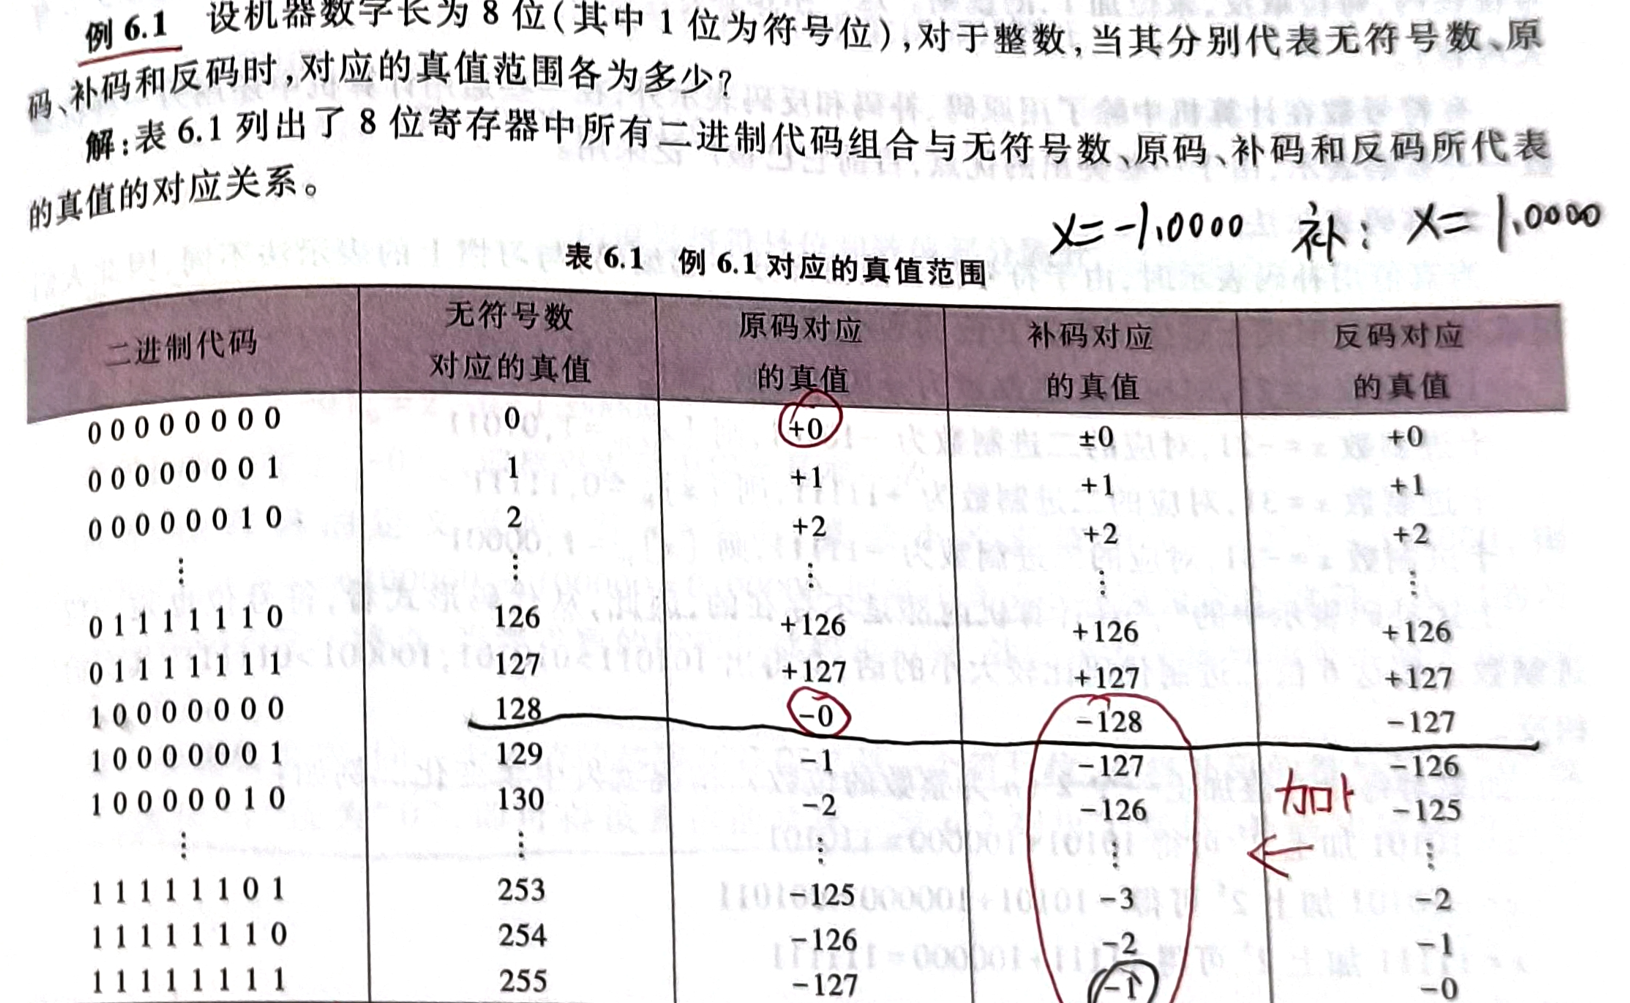 例 6.1 设机器数字长为 8 位(其中 1 位为符号位),对于整数,当其分别代表无符号数、原
码、补码和反码时,对应的真值范围各为多少?
解:表 6.1 列出了 8 位寄存器中所有二进制代码组合与无符号数、原码、补码和反码所代表
的真值的对应关系。
x=-1.0000 补: x=1.0000
表 6.1 例 6.1 对应的真值范围
二进制代码 无符号数对应的真值 原码对应的真值 补码对应的真值 反码对应的真值
0 0 0 0 0 0 0 0 0 +0 ±0 +0
0 0 0 0 0 0 0 1 1 +1 +1 +1
0 0 0 0 0 0 1 0 2 +2 +2 +2
⋮ ⋮ ⋮ ⋮ ⋮
0 1 1 1 1 1 1 0 126 +126 +126 +126
0 1 1 1 1 1 1 1 127 +127 +127 +127
1 0 0 0 0 0 0 0 128 -0 -128 -127
1 0 0 0 0 0 0 1 129 -1 -127 -126
1 0 0 0 0 0 1 0 130 -2 -126 加1 -125
⋮ ⋮ ⋮ ⋮ ← ⋮
1 1 1 1 1 1 0 1 253 -125 -3 -2
1 1 1 1 1 1 1 0 254 -126 -2 -1
1 1 1 1 1 1 1 1 255 -127 -1 -0